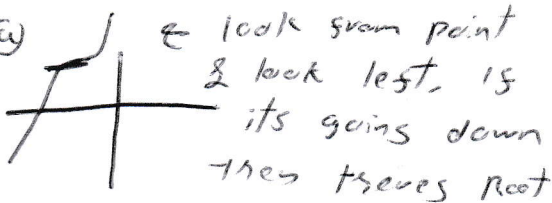 a) ← look from point
& look left, if
its going down
then theres Root